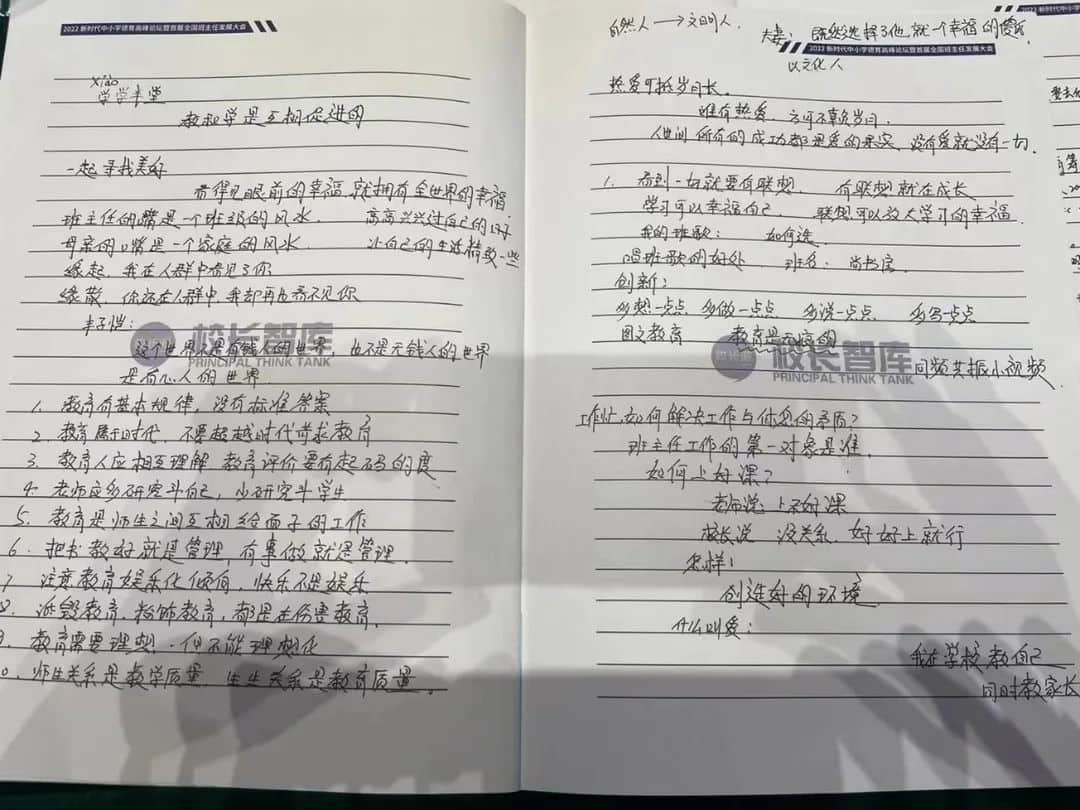 2022 新时代中小学德育高峰论坛暨首届全国班主任发展大会
xiào
学学半
教和学是互相促进的
一起寻找美好
看得见眼前的幸福,就拥有全世界的幸福.
班主任的嘴是一个班级的风水. 高高兴兴过自己的
母亲的嘴是一个家庭的风水. 让自己的生活精致一些
缘起,我在人群中看见了你
缘散,你还在人群中,我却再也看不见你
丰子恺:
校长智库
PRINCIPAL THINK TANK
这个世界不是有钱人的世界,也不是无钱人的世界
是有心人的世界.
1. 教育有基本规律,没有标准答案
2. 教育属于时代,不要超越时代苛求教育
3. 教育人应相互理解 教育评价要有起码的度
4. 老师应多研究斗自己,少研究斗学生
5. 教育是师生之间互相给面子的工作
6. 把书教好就是管理,有事做就是管理.
7 注意教育娱乐化倾向,快乐不是娱乐
8. 诋毁教育,粉饰教育,都是在伤害教育.
9. 教育需要理想.但不能理想化
0. 师生关系是教学质量,生生关系是教育质量.
自然人 → 文明人.
夫妻:既然选择了他,就一个幸福的傻瓜
2022 新时代中小学德育高峰论坛暨首届全国班主任发展大会
以文化人
热爱可抵岁月长.
唯有热爱,方可不负岁月.
人世间所有的成功都是爱的果实,没有爱就没有一切.
1. 看到一切就要有联想, 有联想就在成长
学习可以幸福自己. 联想可以放大学习的幸福.
我的班歌: 如何选.
唱班歌的好处. 班名: 尚书房.
创新:
多想一点点 多做一点点 多说一点点 多写一点点
图文教育 教育是无痕的
校长智库
PRINCIPAL THINK TANK
同频共振小视频.
工作忙,如何解决工作与休息的矛盾?
班主任工作的第一对象是谁.
如何上好课?
老师说 上不好课
校长说 没关系,好好上就行
怎样!
创造好的环境
什么叫爱:
我在学校教自己
同时教家长